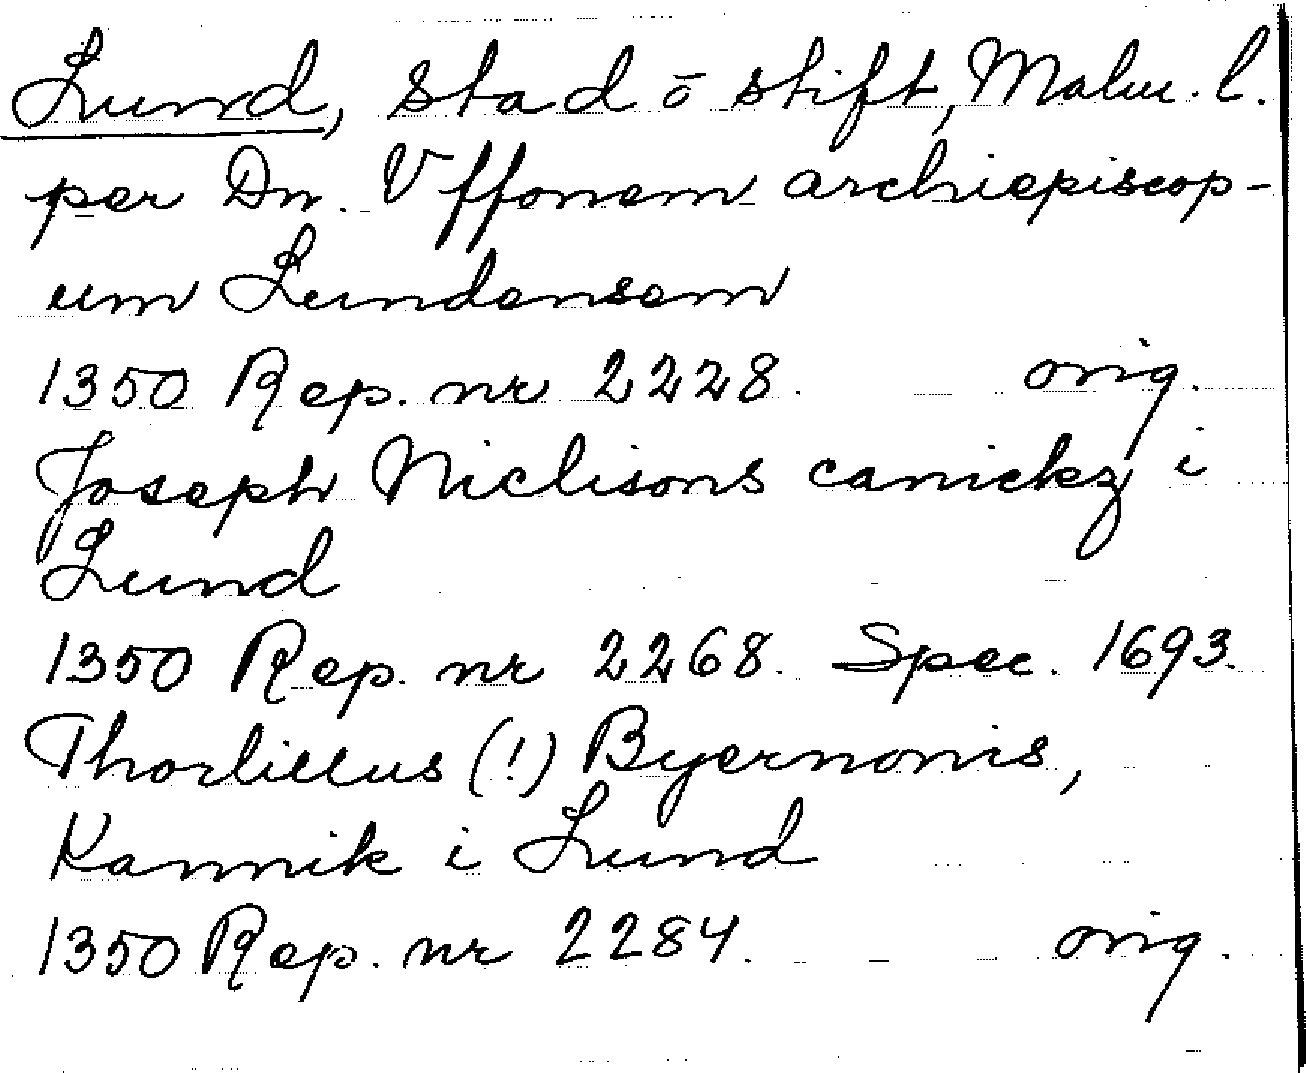 Lund, stad ō stift, Malm. l.
per Dn. Vffonem archiepiscop-
um Lundensem
1350 Rep. nr 2228. orig.
Joseph Niclisons canickz i
Lund
1350 Rep. nr 2268. Spec. 1693.
Thorlillus (!) Byernonis,
Kannik i Lund
1350 Rep. nr 2284. orig.